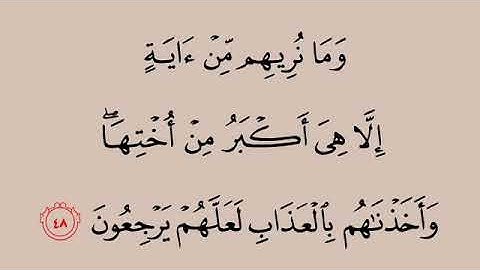 وَمَا نُرِيهِم مِّنْ ءَايَةٍ
إِلَّا هِىَ أَكْبَرُ مِنْ أُخْتِهَا ۖ
وَأَخَذْنَـٰهُم بِٱلْعَذَابِ لَعَلَّهُمْ يَرْجِعُونَ ٤٨